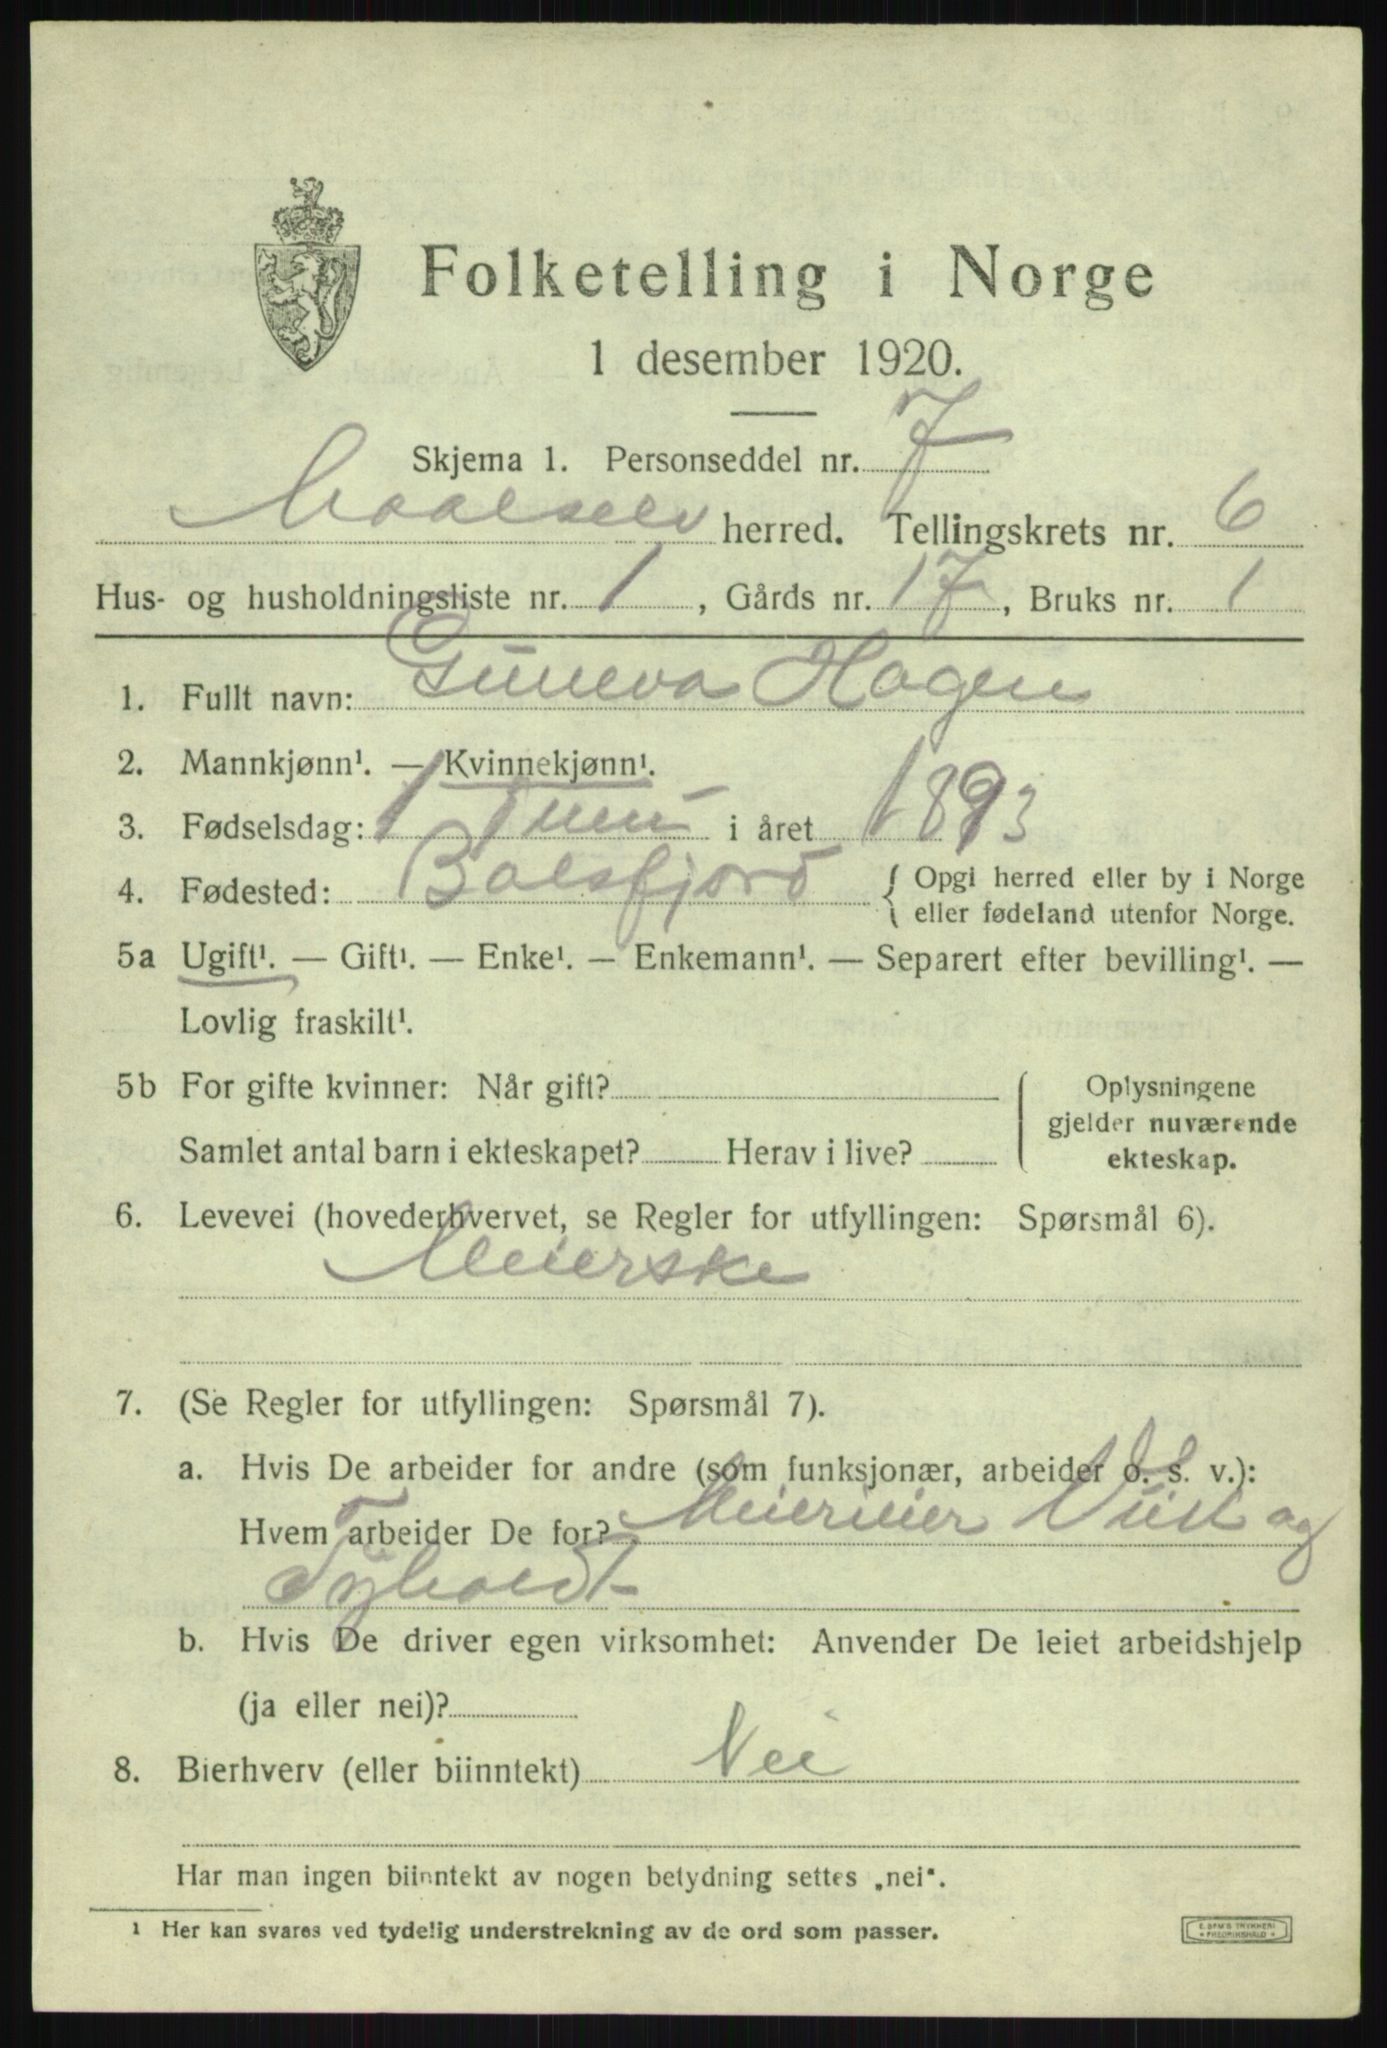 Folketelling i Norge
1 desember 1920.
Skjema 1. Personseddel nr. 7
Maalselv herred. Tellingskrets nr. 6
Hus- og husholdningsliste nr. 1, Gårds nr. 17, Bruks nr. 1
1. Fullt navn: Guneva Hagen
2. Mannkjønn¹. — Kvinnekjønn¹.
3. Fødselsdag: 1 Juni i året 1893
4. Fødested: Balsfjord { Opgi herred eller by i Norge
eller fødeland utenfor Norge.
5a Ugift¹. — Gift¹. — Enke¹. — Enkemann¹. — Separert efter bevilling¹. —
Lovlig fraskilt¹.
5b For gifte kvinner: Når gift? ( Oplysningene
gjelder nuværende
Samlet antal barn i ekteskapet? Herav i live?
ekteskap.
6. Levevei (hovederhvervet, se Regler for utfyllingen: Spørsmål 6).
Meierske
7. (Se Regler for utfyllingen: Spørsmål 7).
a. Hvis De arbeider for andre (som funksjonær, arbeider o. s. v.):
Hvem arbeider De for? Meierier og
b. Hvis De driver egen virksomhet: Anvender De leiet arbeidshjelp
(ja eller nei)?
8. Bierhverv (eller biinntekt) Nei
Har man ingen biinntekt av nogen betydning settes „nei“.
¹ Her kan svares ved tydelig understrekning av de ord som passer.
E. SEM'S TRYKKERI
FREDRIKSHALD